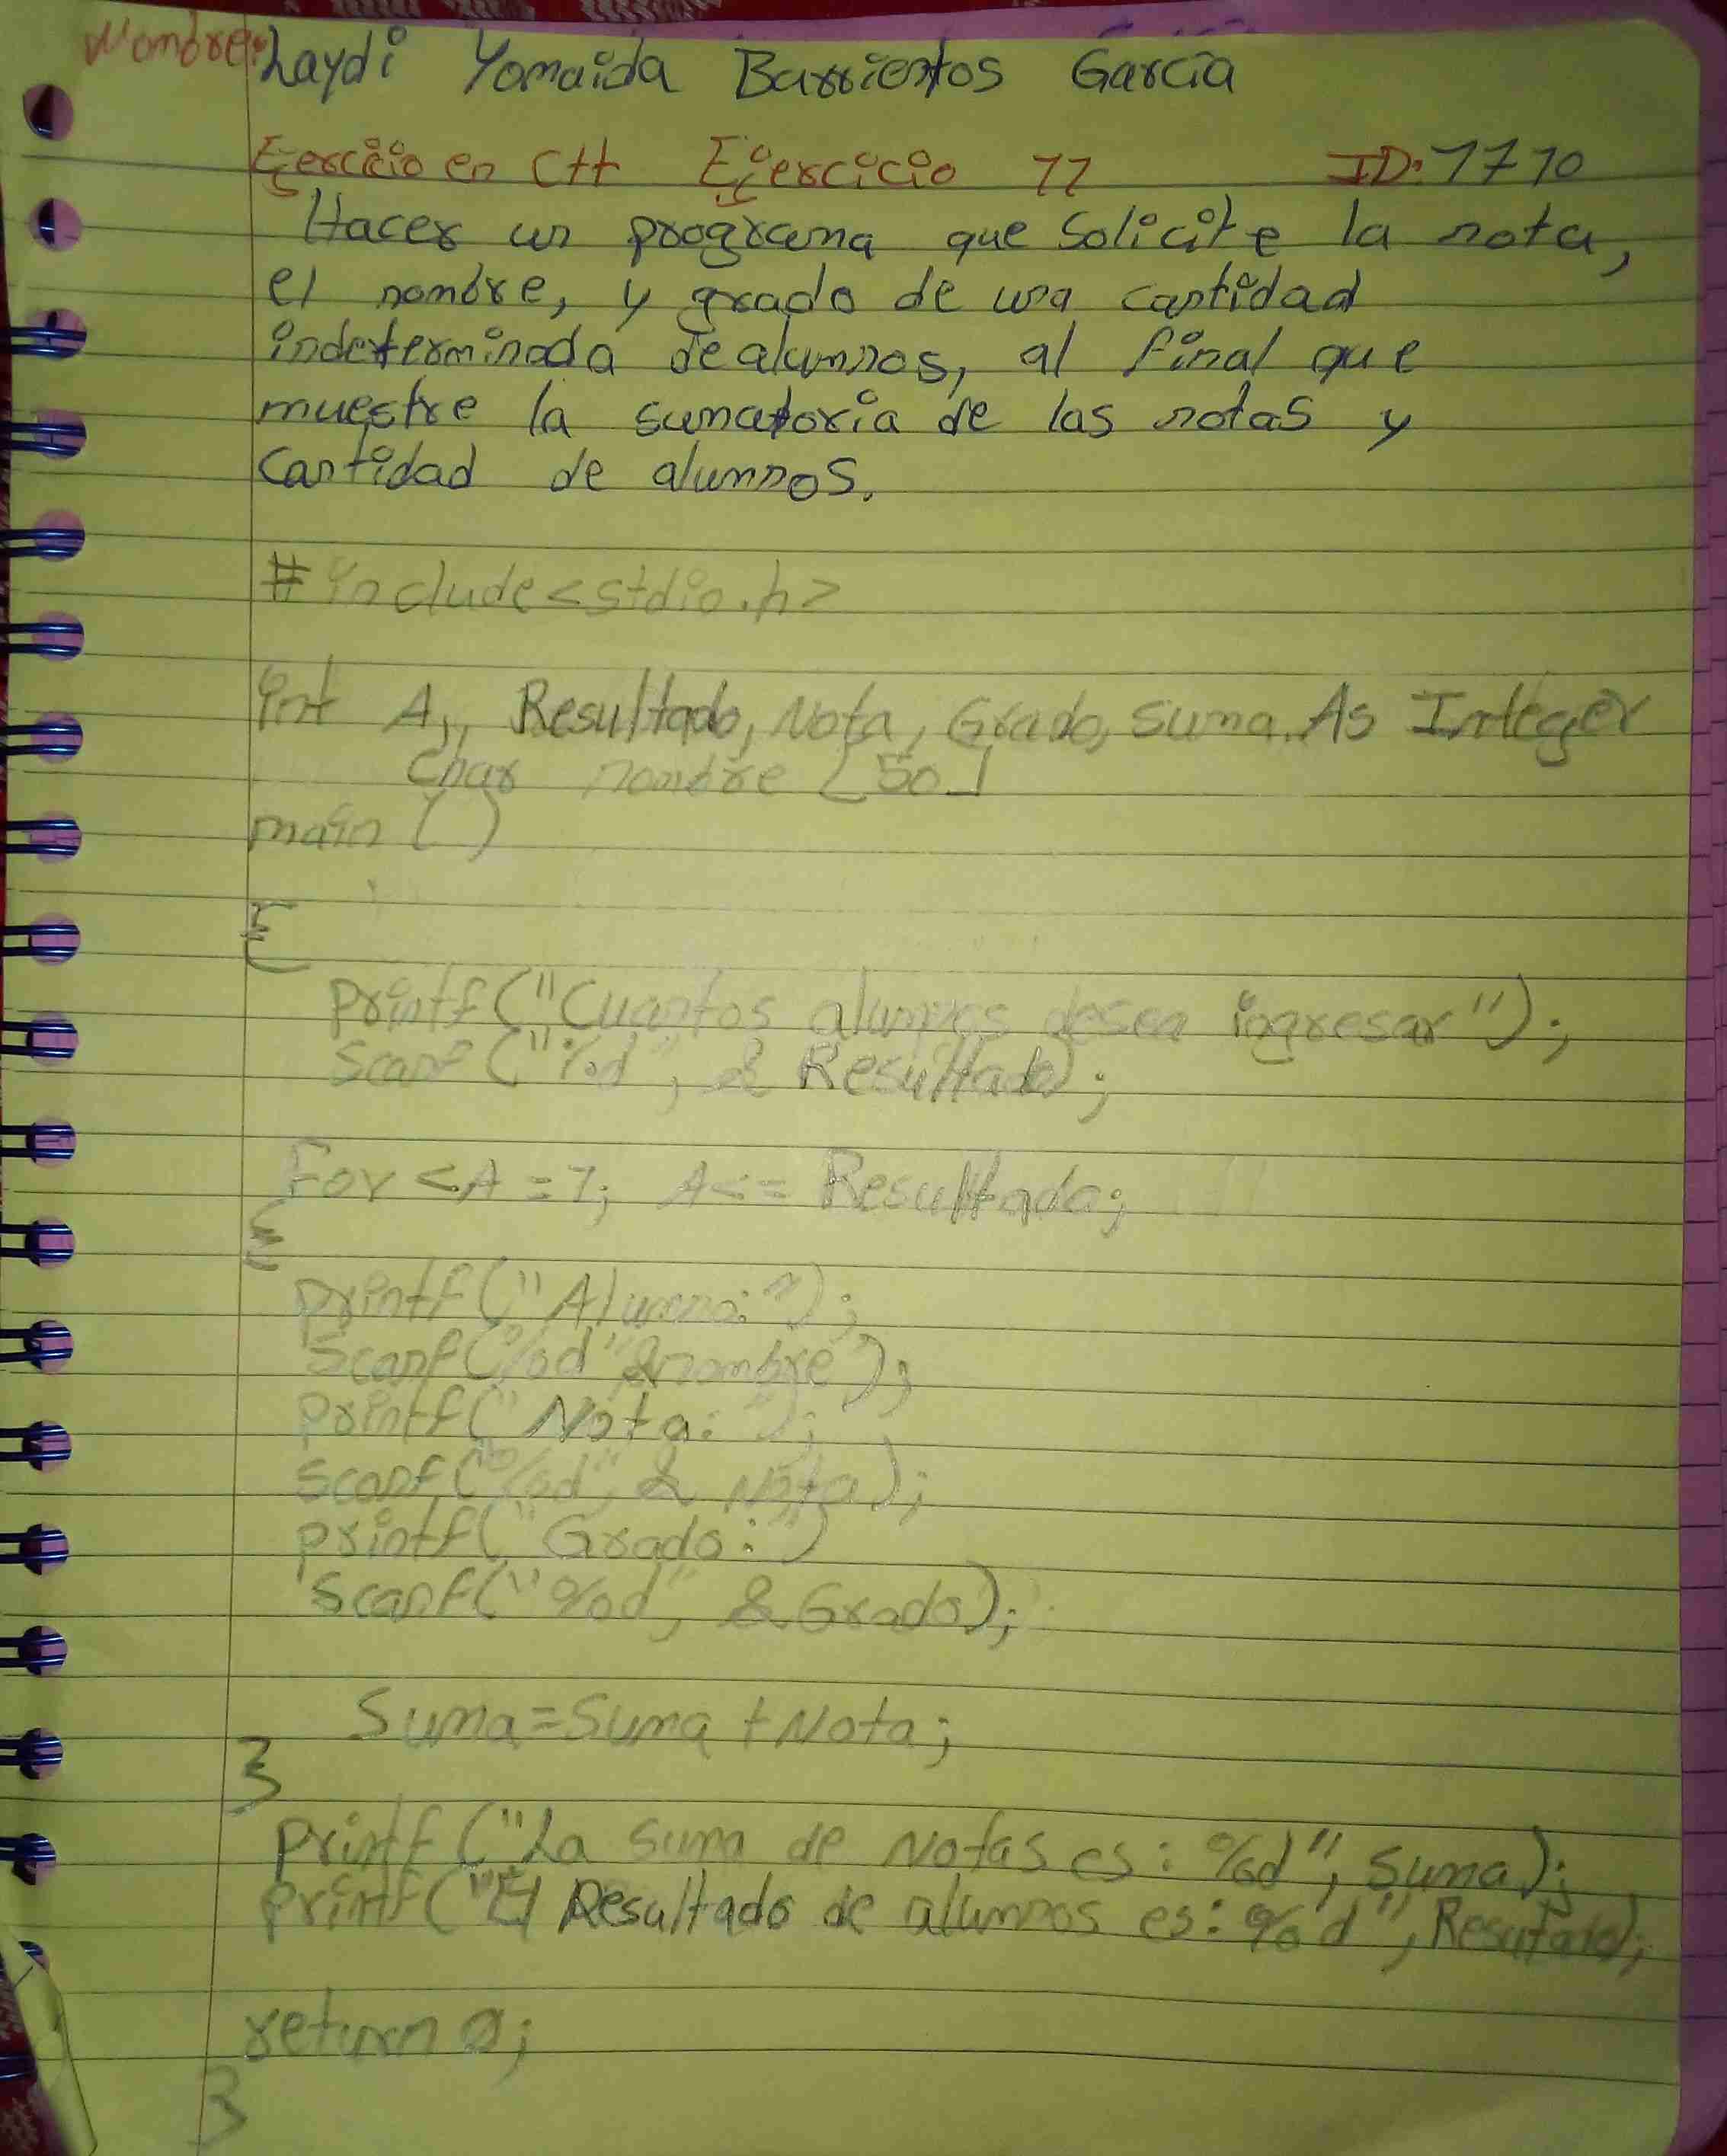 Nombre: Laydi Yomaida Barrientos García
Ejercicio en C++ Ejercicio 11 ID: 1710
Hacer un programa que solicite la nota,
el nombre, y grado de una cantidad
indeterminada de alumnos, al final que
muestre la sumatoria de las notas y
cantidad de alumnos.
#include<stdio.h>
int A,, Resultado, Nota, Grado, Suma. As Integer
char nombre [50]
main ( )
{
printf("Cuantos alumnos desea ingresar");
scanf("%d", & Resultado);
For <A =1; A<= Resultado;
{
printf("Alumno:");
scanf(%d"&nombre");
printf("Nota: ");
scanf("%d", & Nota);
printf("Grado:")
scanf("%d", &Grado);
Suma=Suma +Nota;
}
printf ("La suma de Notas es: %d", Suma);
printf("El Resultado de alumnos es: %d", Resutado);
return 0;
}